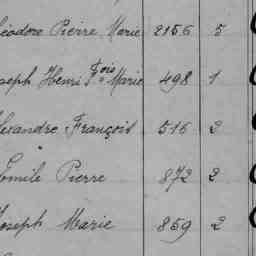 éodore Pierre Marie 2156 5
oseph Henri Fois Marie 498 1
lexandre François 516 2
Emile Pierre 872 2
Joseph Marie 859 2